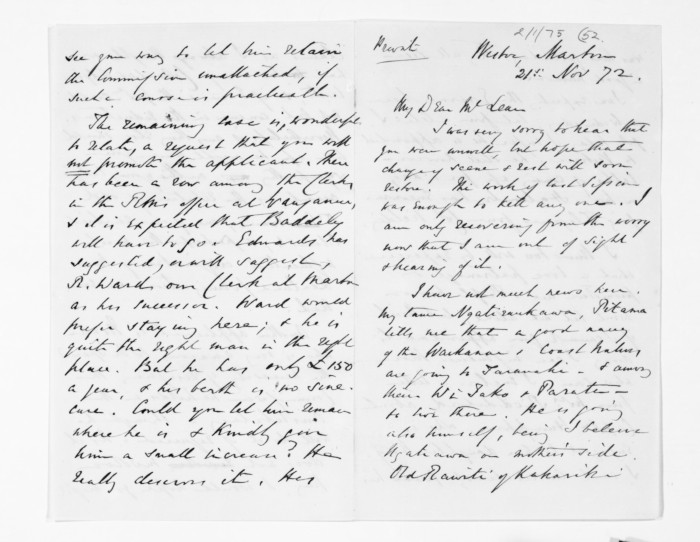 see your way to let him retain
the Commission unattached, if
such course is practicable.
The remaining case is, wonderful
to relate, a request that you will
not promote the applicant. There
has been a row among the Clerks
in the R.M's office at Wanganui,
& it is expected that Baddeley
will have to go. Edwards has
suggested, or will suggest,
R. Ward our Clerk at Marton
as his successor. Ward would
prefer staying here; & he is
quite the right man in the right
place. But he has only £150
a year, & his berth is no sine-
cure. Could you let him remain
where he is & kindly give
him a small increase? He
really deserves it. His
2/1/75 (52
Private
Westoe, Marton
21st Nov 72.
My Dear Mr McLean
I was very sorry to hear that
you were unwell, but hope that
change of scene & rest will soon
restore. The work of last Session
was enough to kill any one. I
am only recovering from the worry
now that I am out of sight
& hearing of it.
I have not much news here.
My tame Ngatiraukawa, Pitama
tells me that a good many
of the Waikanae & Coast Natives
are going to Taranaki - & among
them Wi Tako & Parata -
to live there. He is going
also himself, being I believe
Ngatiawa on mother's side.
Old Rawiti of Kakariki